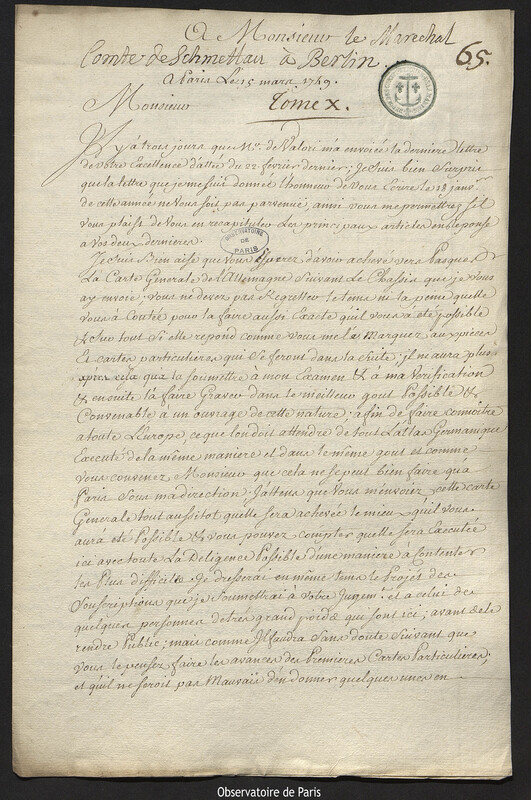 A Monsieur le Marechal
Comte de Schmettau à Berlin.
65.
A Paris Le 15 mars 1749.
Monsieur
Tome X.
Il y a trois jours que Mr. de Valori m'a envoiée la derniere lettre
de Votre Excellence d'attée du 22 fevrier dernier; Je suis bien Surpris
que la lettre que je me suis donné l'honneur de Vous Ecrire le 18 janvr.
de cette année ne Vous soit pas parvenüe, ainsi vous me permettrez s'il
vous plaist de Vous en recapituler Les principaux articles en reponse
à Vos deux dernieres.
OBSERVATOIRE DE PARIS
Je suis Bien aise que Vous Esperez d'avoir achevé vers Pasques
La Carte Generale de l'Allemagne Suivant Le Chassis que je Vous
ay envoié; Vous ne devez pas Regretter le tems ni la peine quelle
Vous a Coutée pour la faire aussi Exacte qu'il vous a été possible
surtout Si elle repond comme vous me le Marquez aux pièces
Et cartes particulieres qui Se feront dans la suite; il n'y aura plus
après cela qu'a la soumettre à mon Examen & à ma Verification
& ensuite la faire Graver dans le meilleur gout Possible &
Convenable à un ouvrage de cette nature; afin de faire connoitre
a toute L'europe, ce que l'on doit attendre de tout L'atlas Germanique
Executé de la même maniere et dans le même gout et comme
Vous convenez Monsieur que cela ne se peut bien faire qu'a
Paris Sous ma direction J'attens que Vous m'envoiez cette carte
Generale tout aussitot quelle sera achevée le mieux qu'il vous
aura eté Possible & vous pouvez compter quelle sera Executée
ici avec toute La Diligence Possible d'une maniere a Contenter
les Plus difficiles. Je dresserai en même tems le Projet des
Souscriptions que je Soumettrai à Votre Jugemt. et a celui de
quelques personnes de très grand poids qui sont ici, avant de le
rendre Public; mais comme Il faudra Sans doute Suivant que
Vous le pensez faire les avances des Premieres Cartes Particulieres;
et qu'il ne seroit pas Mauvais d'en donner quelques unes en
Observatoire de Paris